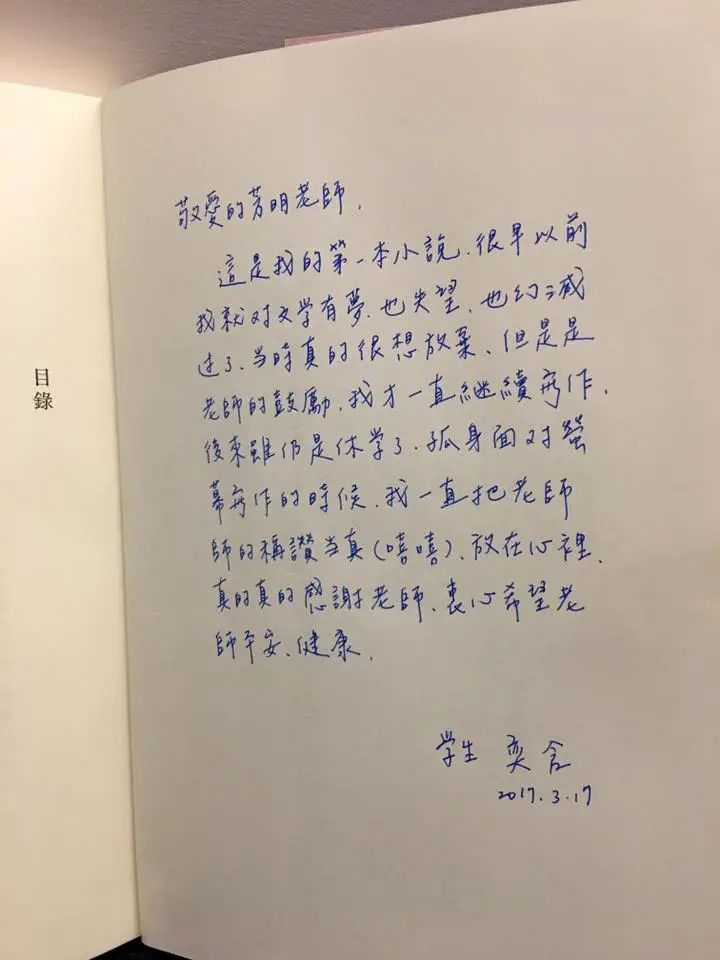 目錄
敬愛的芳明老師.
這是我的第一本小說.很早以前
我就对文学有夢.也失望.也幻滅
过了.当時真的很想放棄、但是是
老師的鼓勵.我才一直繼續寫作.
後來雖仍是休学了.孤身面对螢
幕寫作的時候.我一直把老師
師的稱讚当真(嘻嘻).放在心裡.
真的真的感謝老師.衷心希望老
師平安、健康.
学生 奕含
2017.3.17